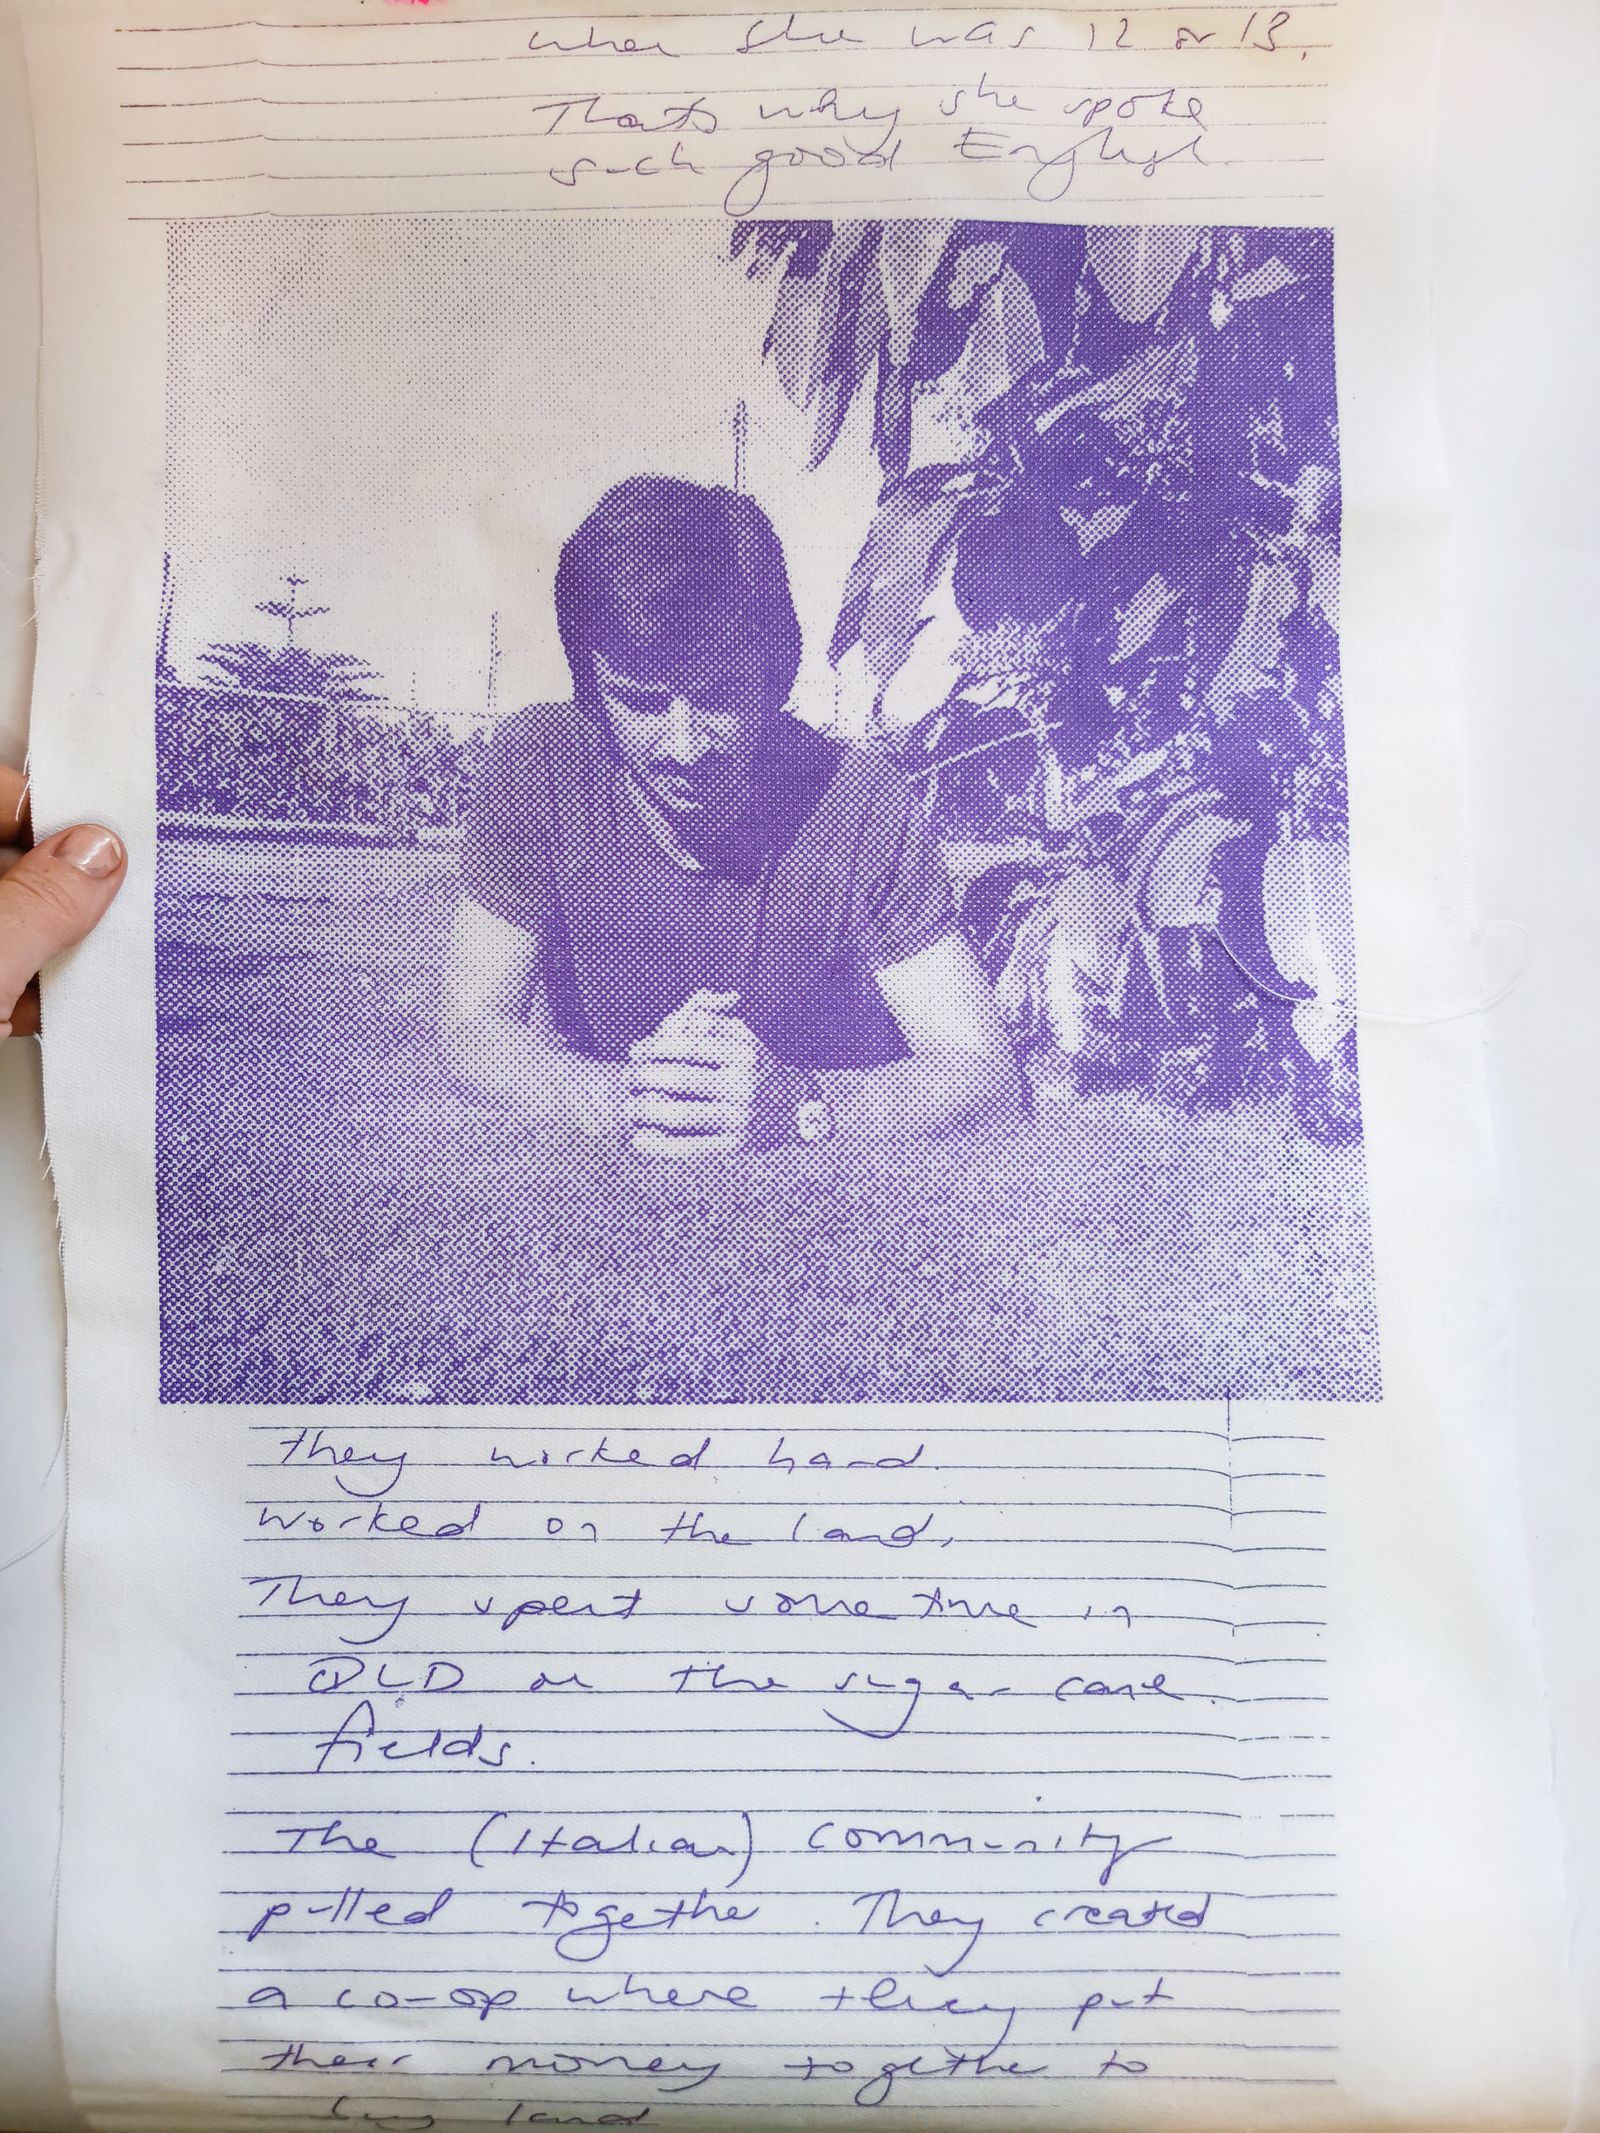 when she was 12 or 13.
Thats why she spoke
such good English.
they worked hard.
worked on the land,
They spent some time in
QLD on the sugar cane
fields.
The (Italian) community
pulled together. They created
a co-op where they put
their money together to
buy land